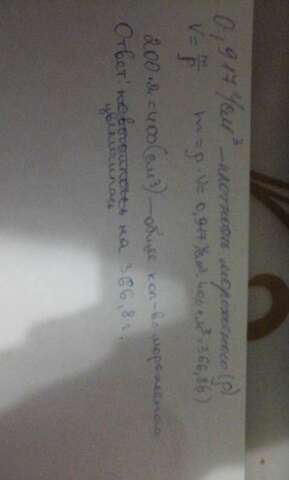 0,917 г/см³ — плотность мороженого (ρ)
V = m/ρ m = ρ · V = 0,917 г/см³ · 400 см³ = 366,8 (г)
200 · 2 = 400 (см³) — общее кол-во мороженого
Ответ: увеличилась на 366,8 г.